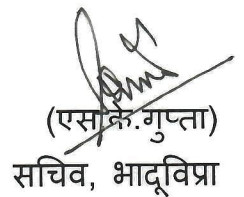 (एस.के.गुप्ता)
सचिव, भादूविप्रा